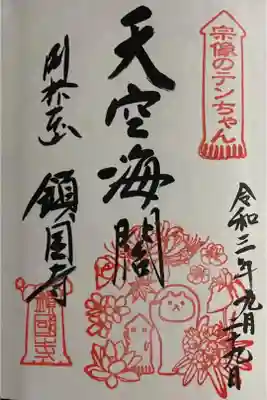 宗像のテンちゃん
令和三年九月二十九日
天空海闊
別格本山
鎮国寺
鎮國寺